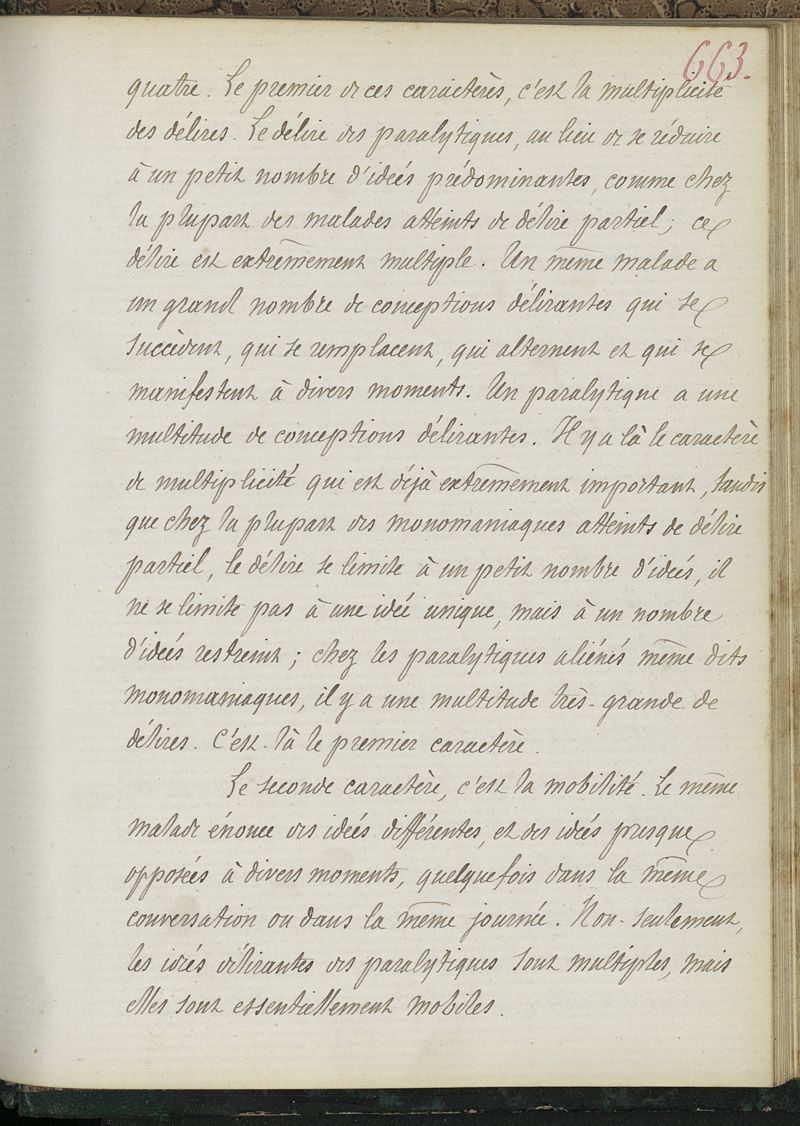 663.
quatre. Le premier de ces caractères, c'est la multiplicité
des délires. Le délire des paralytiques, au lieu de se réduire
à un petit nombre d'ideés prédominantes, comme chez
la plupart des malades atteints de délire partiel; ce
délire est extrêmement multiple. Un même malade a
un grand nombre de conceptions délirantes qui se
succèdent, qui se remplacent, qui alternent et qui se
manifestent à divers moments. Un paralytique a une
multitude de conceptions délirantes. Il y a là le caractère
de multiplicité qui est déjà extrêmement important, tandis
que chez la plupart des monomaniaques atteints de délire
partiel, le délire se limite à un petit nombre d'ideés, il
ne se limite pas à une idée unique, mais à un nombre
d'ideés restreint; chez les paralytiques aliénés même dits
monomaniaques, il y a une multitude très-grande de
délires. C'est-là le premier caractère.
Le seconde caractère, c'est la mobilité. Le même
malade énonce des ideés différentes, et des ideés presque
opposées à divers moments, quelquefois dans la même
conversation ou dans la même journée. Non-seulement,
les ideés délirantes des paralytiques sont multiples, mais
elles sont essentiellement mobiles.